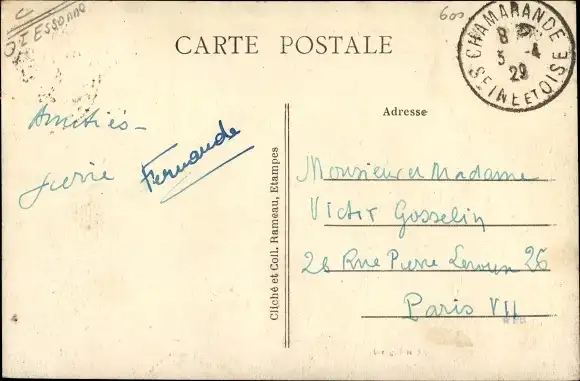 C
01 Essonne
600
CARTE POSTALE
CHAMARANDE
8
5 -4
29
SEINE ET OISE
Adresse
Amitiés -
Pierre Fernande
Cliché et Coll. Rameau, Etampes
Monsieur et Madame
Victor Gosselin
26 Rue Pierre Leroux 26
Paris VII